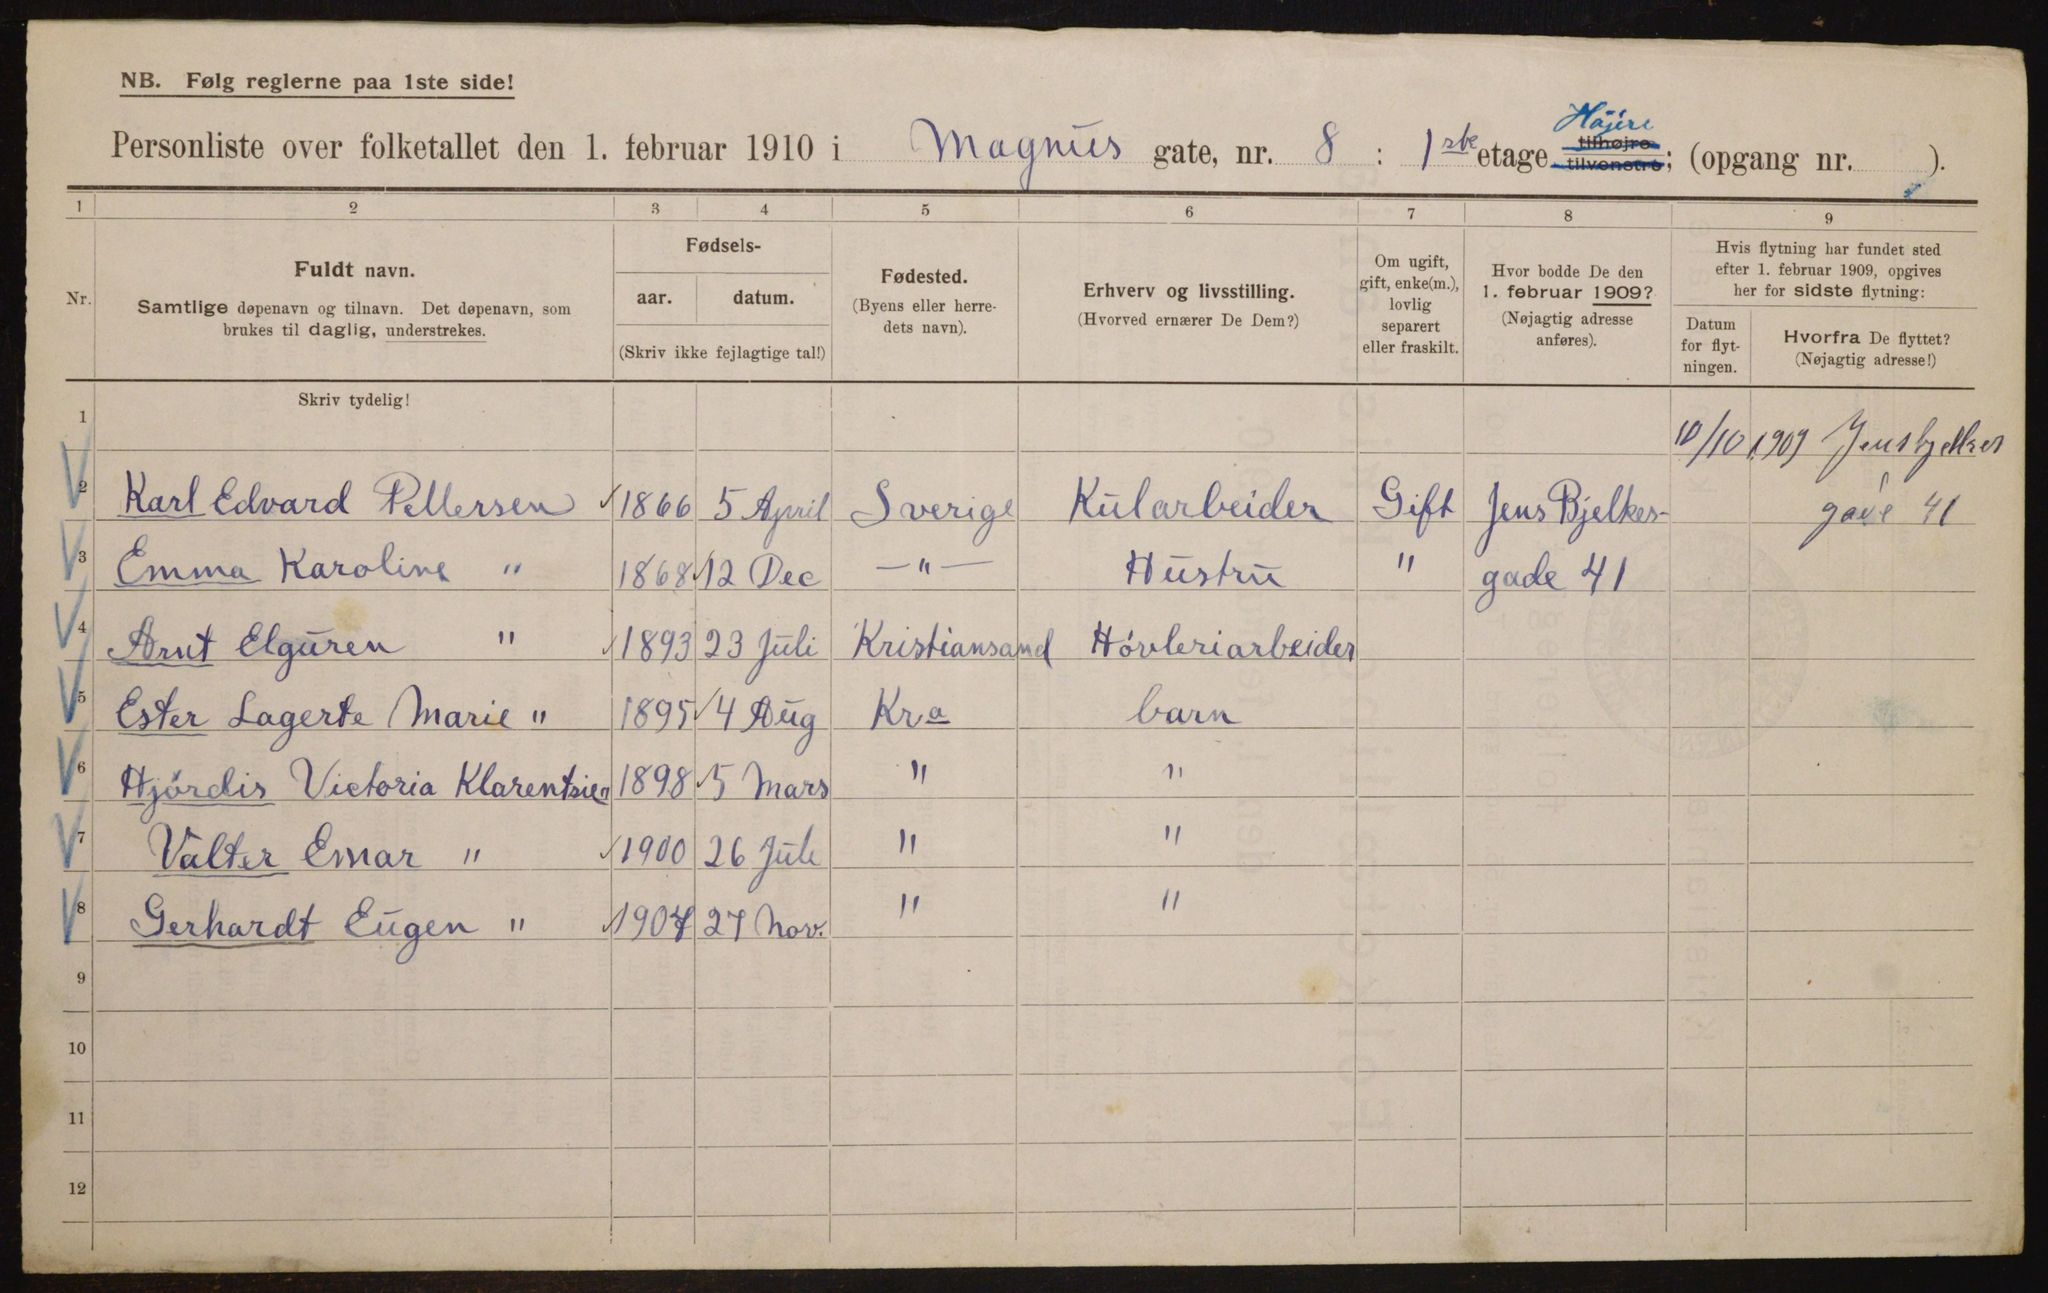 NB. Følg reglerne paa 1ste side!
Højere
Personliste over folketallet den 1. februar 1910 i Magnus gate, nr. 8 : 1ste etage tilhøjre tilvenstre; (opgang nr. ).
1 2 3 4 5 6 7 8 9
Nr.
Fuldt navn.
Samtlige døpenavn og tilnavn. Det døpenavn, som
brukes til daglig, understrekes.
Fødsels-
aar. datum.
(Skriv ikke fejlagtige tal!)
Fødested.
(Byens eller herre-
dets navn).
Erhverv og livsstilling.
(Hvorved ernærer De Dem?)
Om ugift,
gift, enke(m.),
lovlig
separert
eller fraskilt.
Hvor bodde De den
1. februar 1909?
(Nøjagtig adresse
anføres).
Hvis flytning har fundet sted
efter 1. februar 1909, opgives
her for sidste flytning:
Datum
for flyt-
ningen.
Hvorfra De flyttet?
(Nøjagtig adresse!)
Skriv tydelig!
1 10/10 1909
2 Karl Edvard Pettersen 1866 5 April Sverige Kularbeider Gift Jens Bjelkes- 41
3 Emma Karoline " 1868 12 Dec —"— Hustru " gade 41
4 Arnt Elguren " 1893 23 Juli Kristiansand Hövleriarbeider
5 Ester Lagerte Marie " 1895 4 Aug Kra barn
6 Hjördis Victoria Klarentsie " 1898 5 Mars " "
7 Valter Emar " 1900 26 Juli " "
8 Gerhardt Eugen " 1907 27 Nov. " "
9
10
11
12